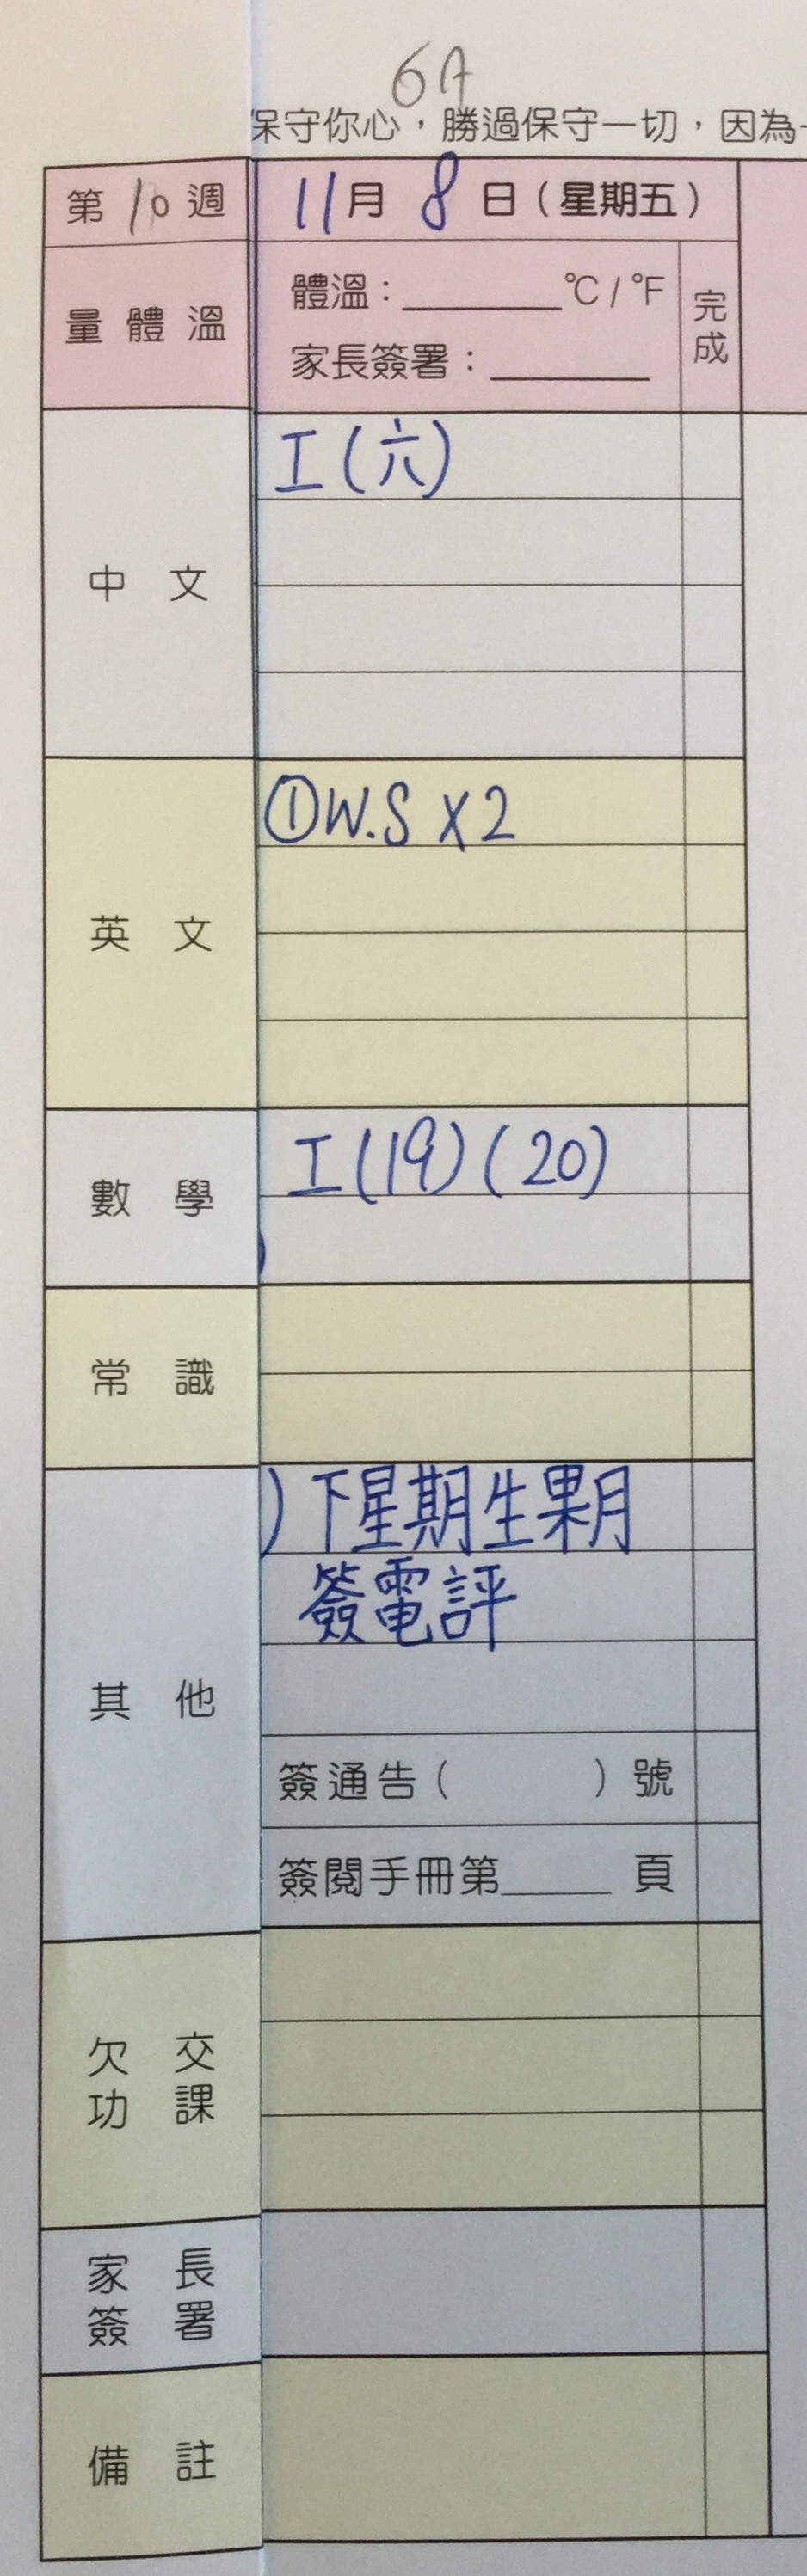 6A
保守你心，勝過保守一切，因為
第10週 11月8日（星期五）
量體溫
體溫：______℃/℉
家長簽署：______
完成
中文
工(六)
英文
①W.S X2
數學
工(19)(20)
常識
其他
)下星期生果月
簽電評
簽通告（ ）號
簽閱手冊第____頁
欠交功課
家長簽署
備註